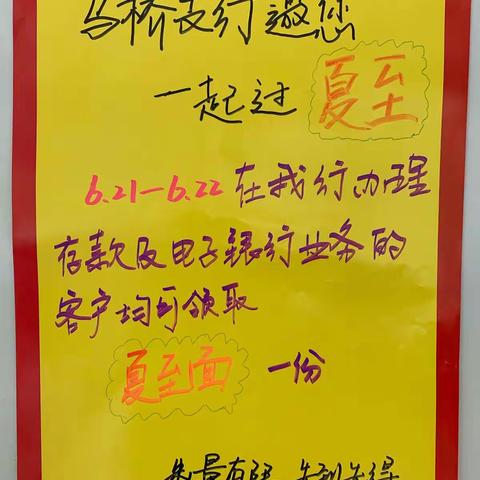 马桥支行邀您
一起过 夏至
6.21—6.22 在我行办理
存款及电子银行业务的
客户均可领取
夏至面 一份
数量有限 先到先得